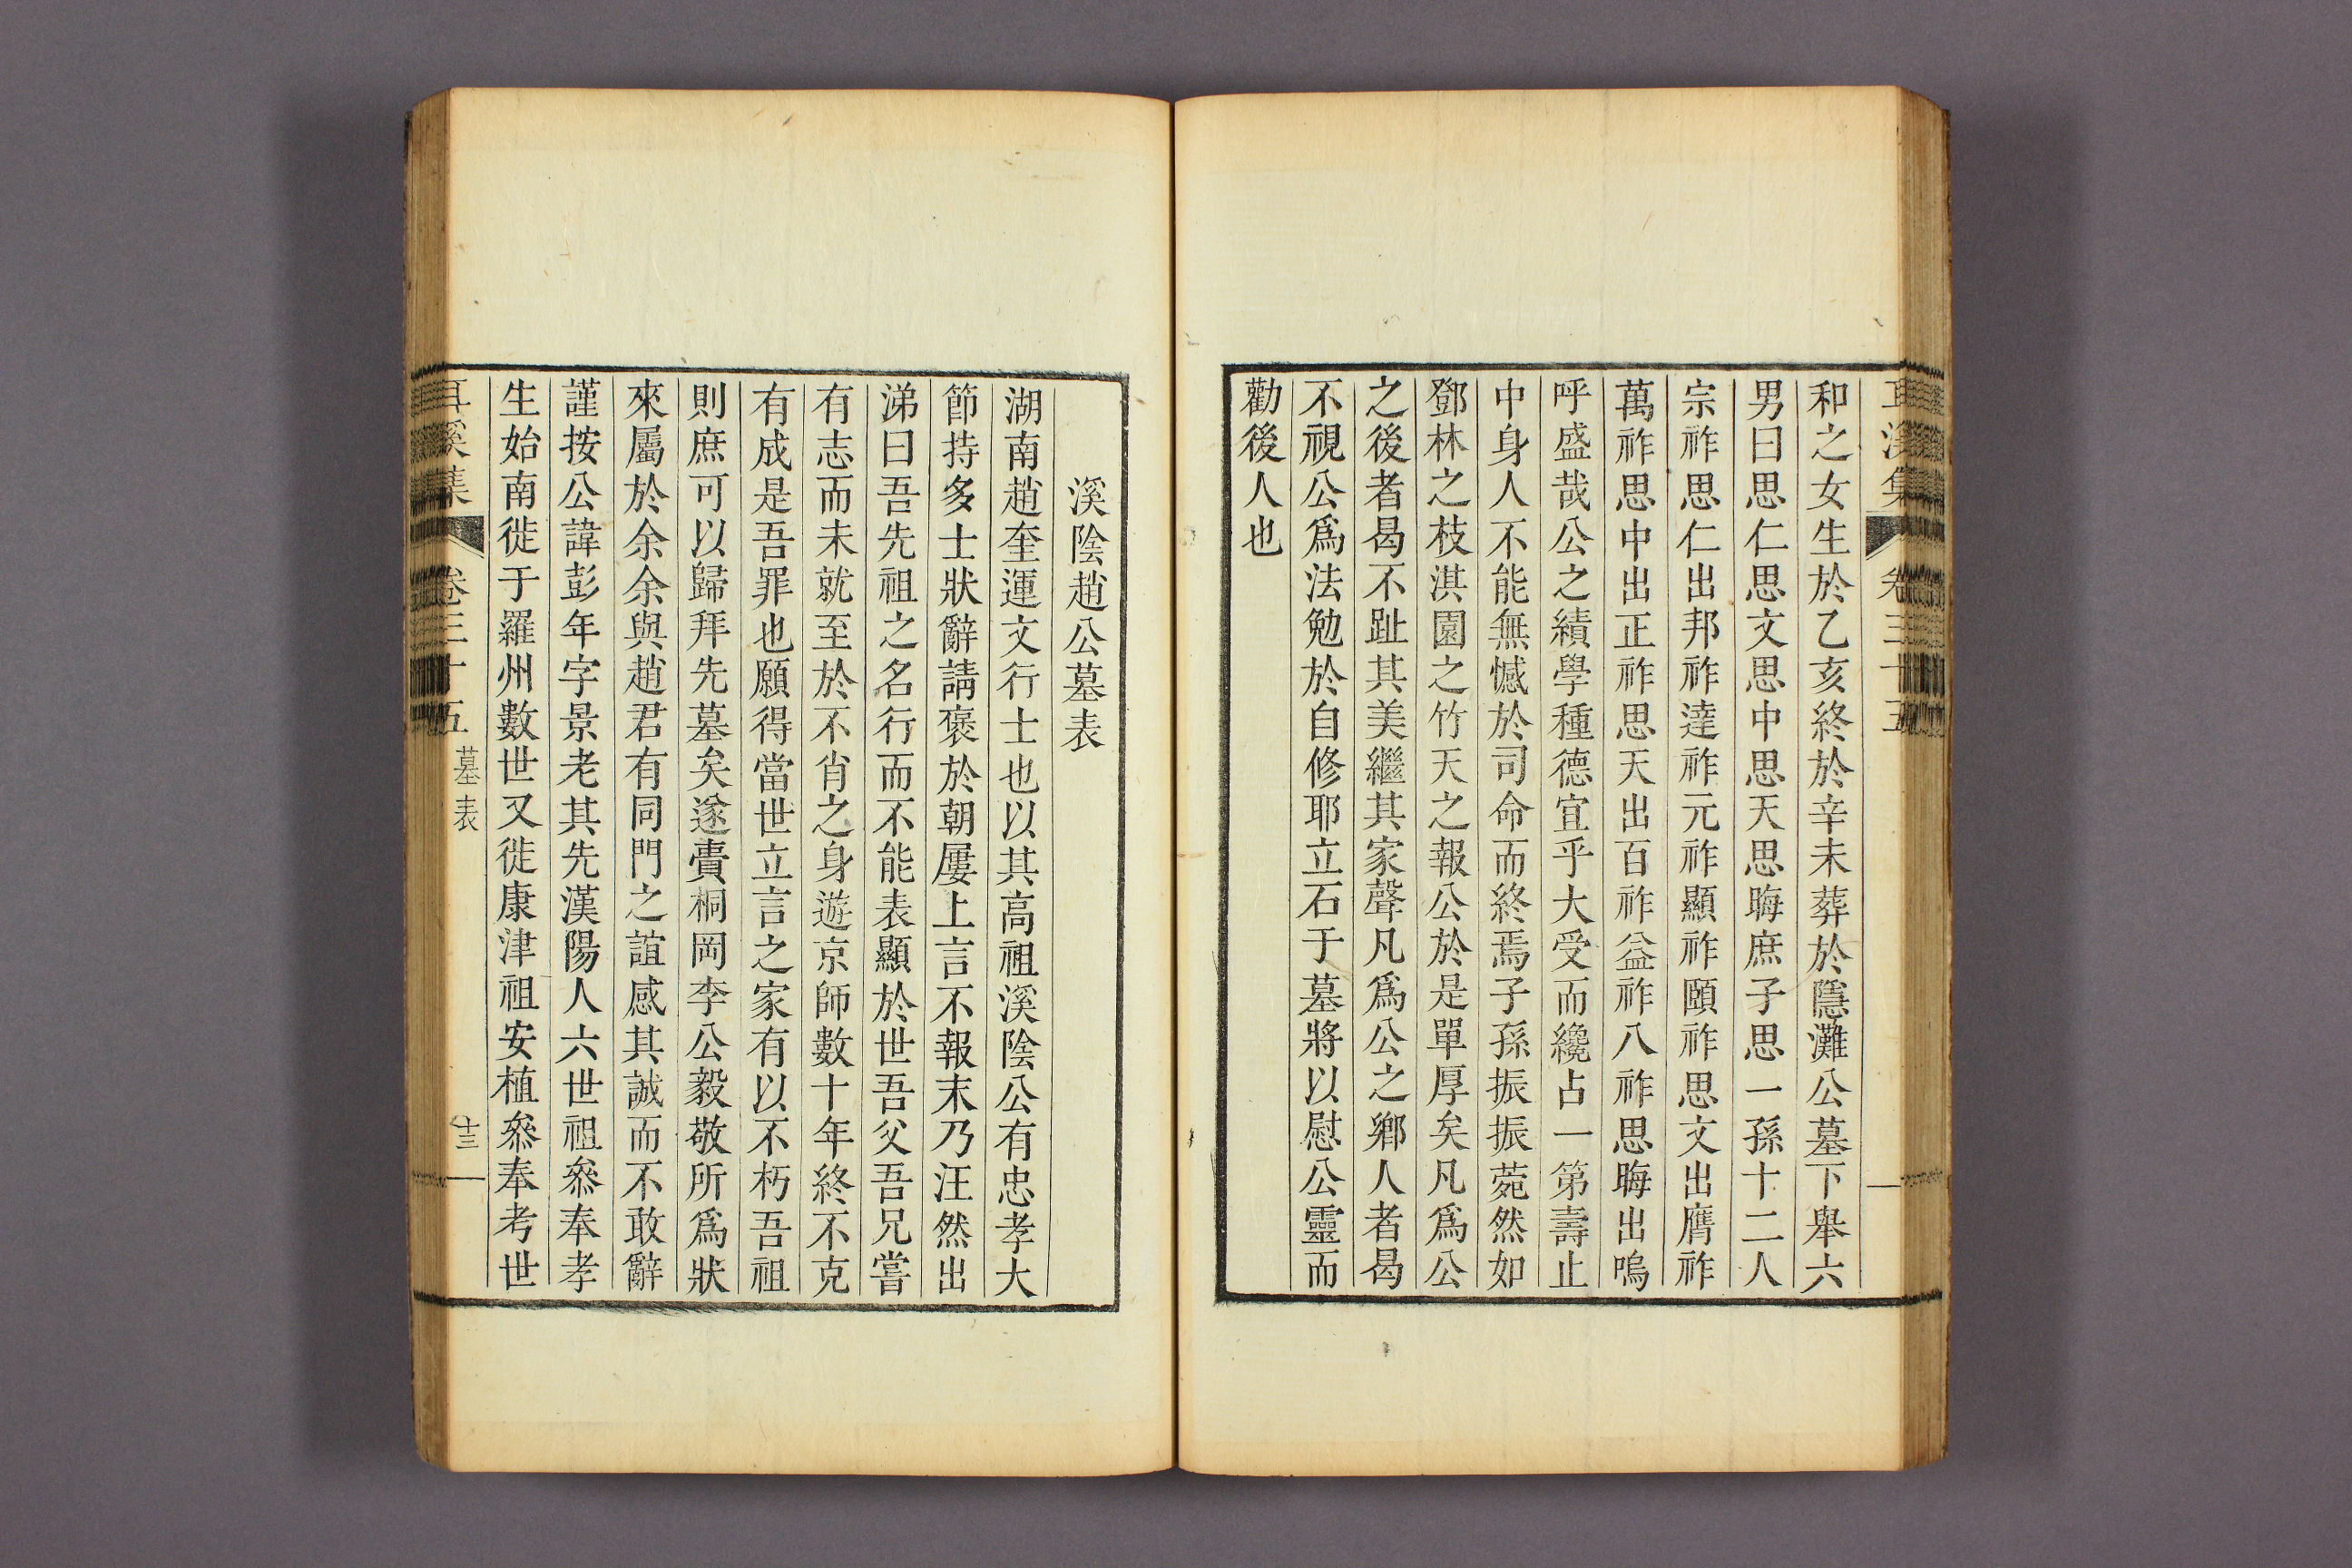 耳溪集 卷三十五
和之女生於乙亥終於辛未葬於隱灘公墓下舉六
男曰思仁思文思中思天思晦庶子思一孫十二人
宗祚思仁出邦祚達祚元祚顯祚頤祚思文出膺祚
萬祚思中出正祚思天出百祚益祚八祚思晦出嗚
呼盛哉公之績學種德宜乎大受而纔占一第壽止
中身人不能無憾於司命而終焉子孫振振菀然如
鄧林之枝淇園之竹天之報公於是單厚矣凡爲公
之後者曷不趾其美繼其家聲凡爲公之鄉人者曷
不視公爲法勉於自修耶立石于墓將以慰公靈而
勸後人也
溪陰趙公墓表
湖南趙奎運文行士也以其高祖溪陰公有忠孝大
節持多士狀辭請褒於朝屢上言不報末乃汪然出
涕曰吾先祖之名行而不能表顯於世吾父吾兄嘗
有志而未就至於不肖之身遊京師數十年終不克
有成是吾罪也願得當世立言之家有以不朽吾祖
則庶可以歸拜先墓矣遂賷桐岡李公毅敬所爲狀
來屬於余余與趙君有同門之誼感其誠而不敢辭
謹按公諱彭年字景老其先漢陽人六世祖叅奉孝
生始南徙于羅州數世又徙康津祖安植叅奉考世
耳溪集 卷三十五 墓表 十三